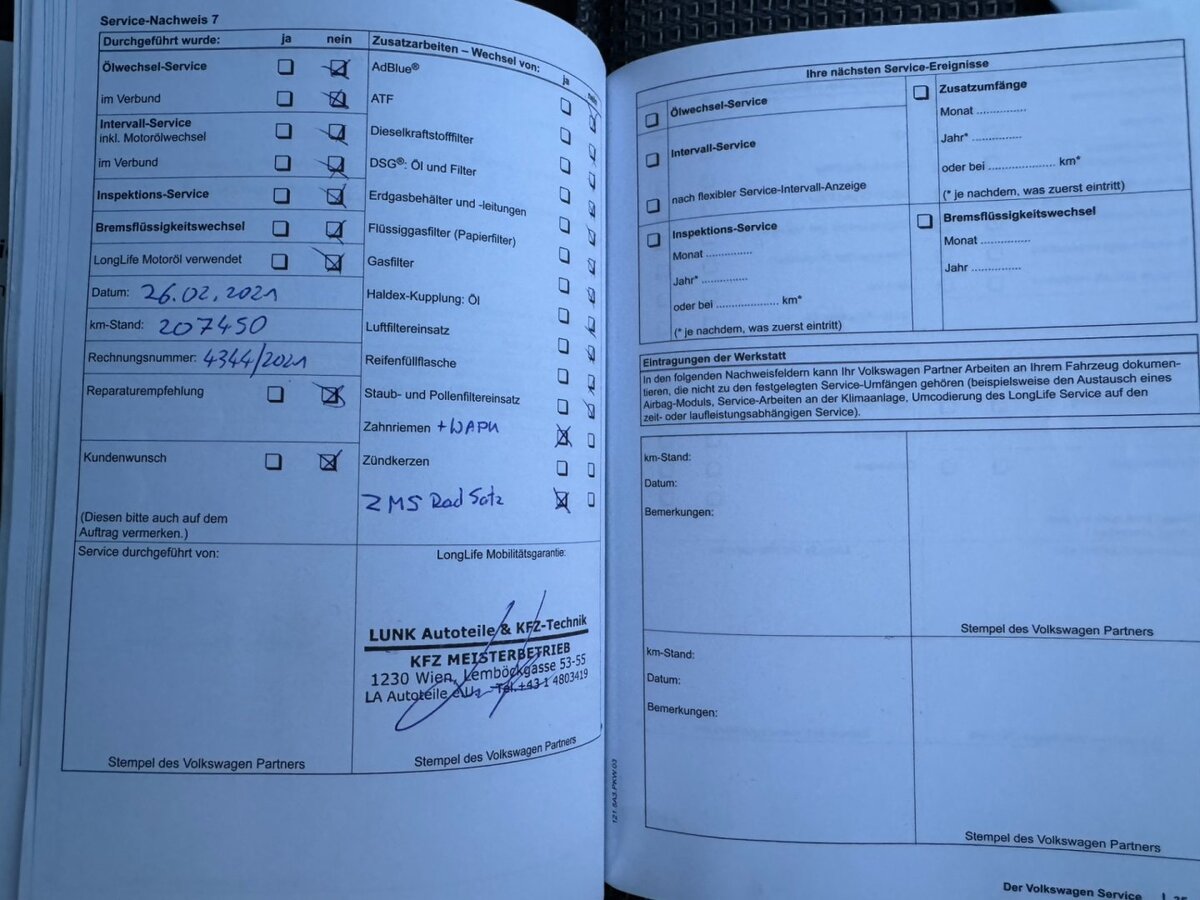 Service-Nachweis 7
Durchgeführt wurde: ja nein
Ölwechsel-Service
im Verbund
Intervall-Service
inkl. Motorölwechsel
im Verbund
Inspektions-Service
Bremsflüssigkeitswechsel
LongLife Motoröl verwendet
Datum: 26.02.2021
km-Stand: 207450
Rechnungsnummer: 4344/2021
Reparaturempfehlung
Kundenwunsch
(Diesen bitte auch auf dem
Auftrag vermerken.)
Service durchgeführt von:
Stempel des Volkswagen Partners
Zusatzarbeiten – Wechsel von: ja nein
AdBlue®
ATF
Dieselkraftstofffilter
DSG®: Öl und Filter
Erdgasbehälter und -leitungen
Flüssiggasfilter (Papierfilter)
Gasfilter
Haldex-Kupplung: Öl
Luftfiltereinsatz
Reifenfüllflasche
Staub- und Pollenfiltereinsatz
Zahnriemen + WAPU
Zündkerzen
ZMS Rad Satz
LongLife Mobilitätsgarantie:
LUNK Autoteile & KFZ-Technik
KFZ MEISTERBETRIEB
1230 Wien, Lemböckgasse 53-55
LA Autoteile e.U. Tel.+43 1 4803419
Stempel des Volkswagen Partners
121.5A3.PKW.03
Ihre nächsten Service-Ereignisse
Ölwechsel-Service
Intervall-Service
nach flexibler Service-Intervall-Anzeige
Inspektions-Service
Monat ..............
Jahr* ..............
oder bei ................... km*
(* je nachdem, was zuerst eintritt)
Zusatzumfänge
Monat ..............
Jahr* ..............
oder bei ................... km*
(* je nachdem, was zuerst eintritt)
Bremsflüssigkeitswechsel
Monat ..............
Jahr ..............
Eintragungen der Werkstatt
In den folgenden Nachweisfeldern kann Ihr Volkswagen Partner Arbeiten an Ihrem Fahrzeug dokumen-
tieren, die nicht zu den festgelegten Service-Umfängen gehören (beispielsweise den Austausch eines
Airbag-Moduls, Service-Arbeiten an der Klimaanlage, Umcodierung des LongLife Service auf den
zeit- oder laufleistungsabhängigen Service).
km-Stand:
Datum:
Bemerkungen:
Stempel des Volkswagen Partners
km-Stand:
Datum:
Bemerkungen:
Stempel des Volkswagen Partners
Der Volkswagen Service